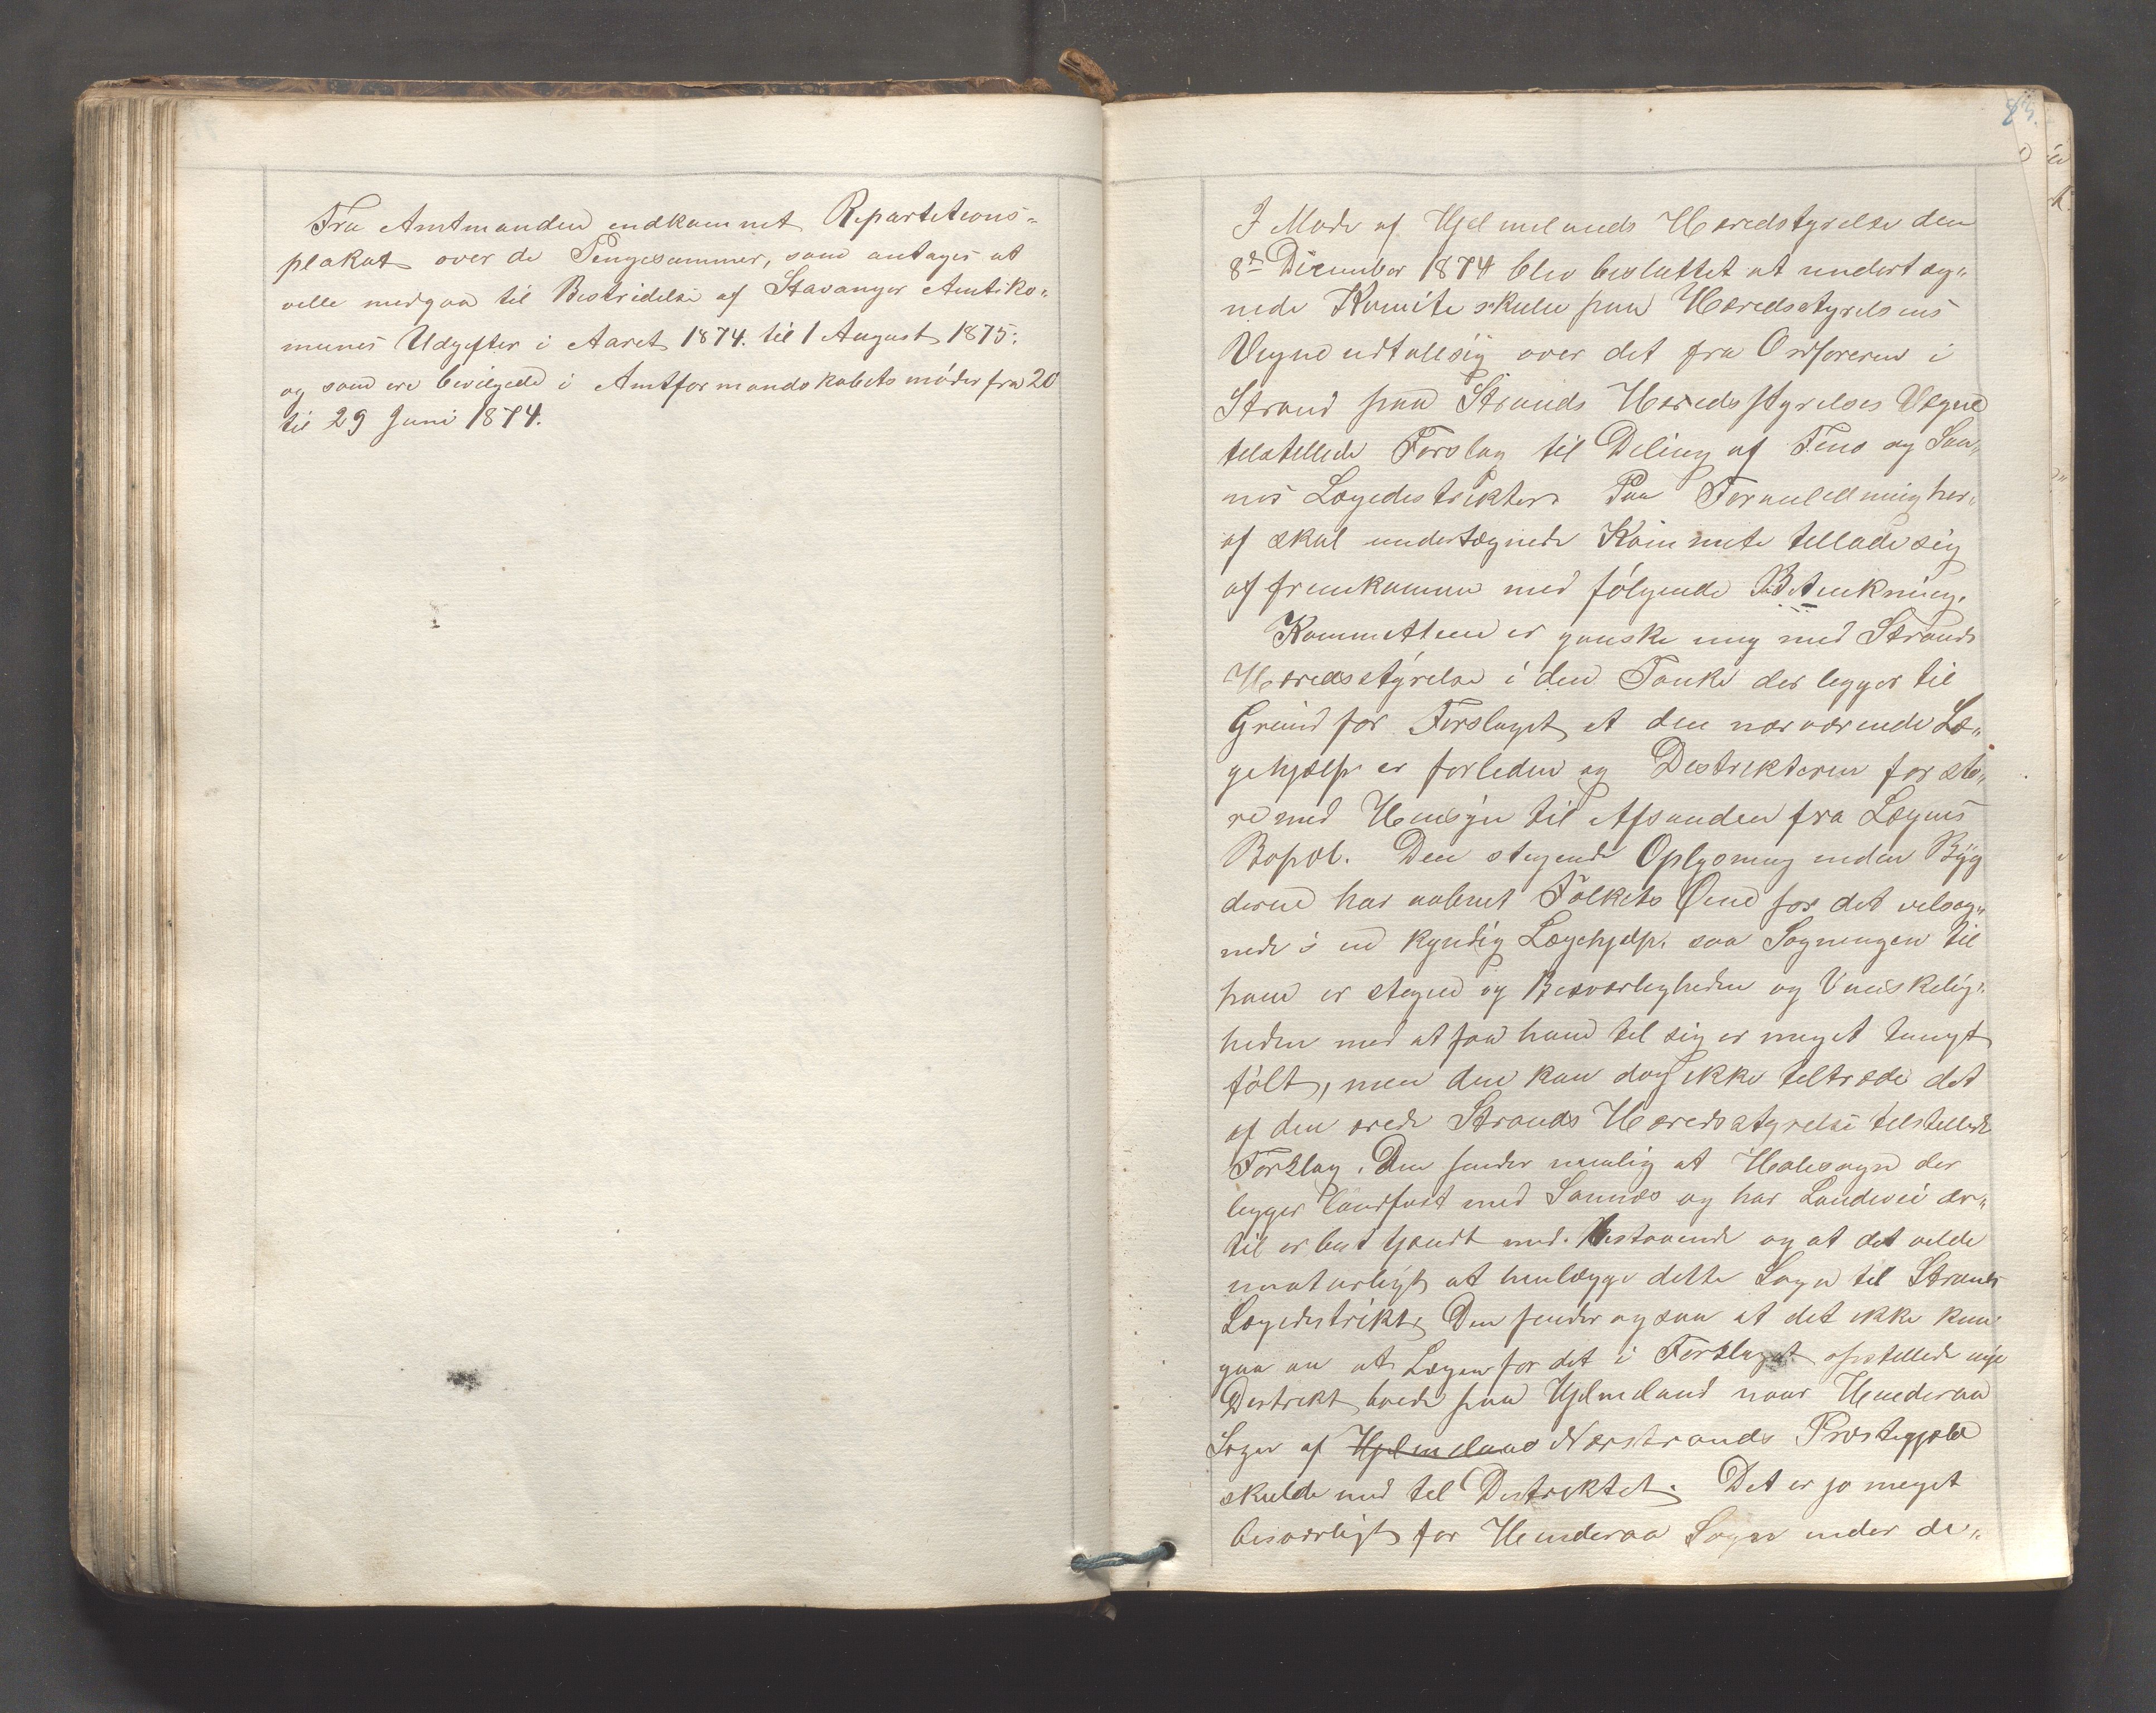 Fra Amtmanden indkommet Repartitions-
plakat over de Pengesummer, som antages at
ville medgaa til Bestridelse af Stavanger Amtsko-
munes Udgifter i Aaret 1874. til 1 August 1875.
og som ere bevilgede i Amtformandskabets møder fra 20
til 29 Juni 1874.
83.
I Møde af Hjelmelands Heredstyrelse den
8de December 1874 blev besluttet at undertæg-
nede Komite skulde paa Heredsstyrelsens
Vegne udtale sig over det fra Ordføreren i
Strand paa Strands Heredsstyrelses Vegne
tilstillede Forslag til Deling af Finø og San-
nes Lægedistrikter. Paa Foranledning her-
af skal undertægnede Kommite tillade sig
at fremkomme med følgende Betænkning.
Kommitteen er ganske enig med Strands
Heredsstyrelse i den Tanke der ligger til
Grund for Forslaget at den nærværende Læ-
gehjælp er forliden og Distrikterne for sto-
re med Hensyn til Afstanden fra Lægens
Bopæl. Den stigende Oplysning inden Byg
derne har aabnet Folkets Øine for det velsig-
nede i en kyndig Lægehjelp. saa Søgningen til
ham er stegen og Besværligheden og Vanskelig-
heden med at faa ham til sig er meget tungt
følt, men den kan dog ikke tiltræde det
af den ærede Strands Heredsstyrelse tilstillede
Forslag. Den finder nemlig at Holesogn der
ligger landfast med Sannes og har Landevei der-
til er best tjent med Bestaaende og at det vilde
unaturligt at henlægge dette Sogn til Strands
Lægedistrikt. Den finder ogsaa at det ikke kan
gaa an at Lægen for det i Forslaget opstillede nye
Distrikt boede paa Hjelmeland naar Hinderaa
Sogn af Hjelmeland Nerstrands Præstegjæld
skulde med til Distriktet. Det er jo meget
besværligt for Hinderaa Sogn under de-